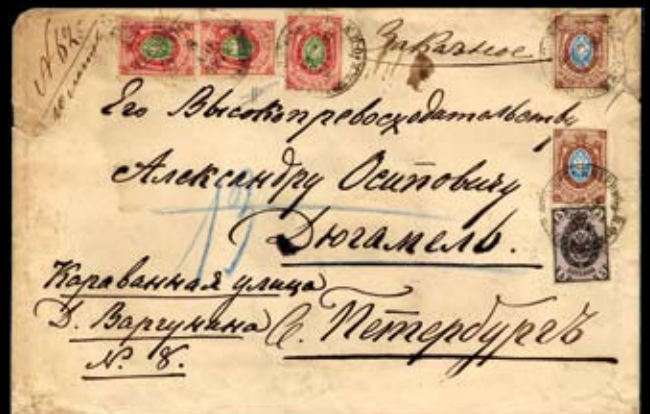 N 62
Заказное
Его Высокопревосходительству
Александру Осиповичу
Дюгамель.
Караванная улица
Д. Варгунина
С. Петербургъ
№. 8.